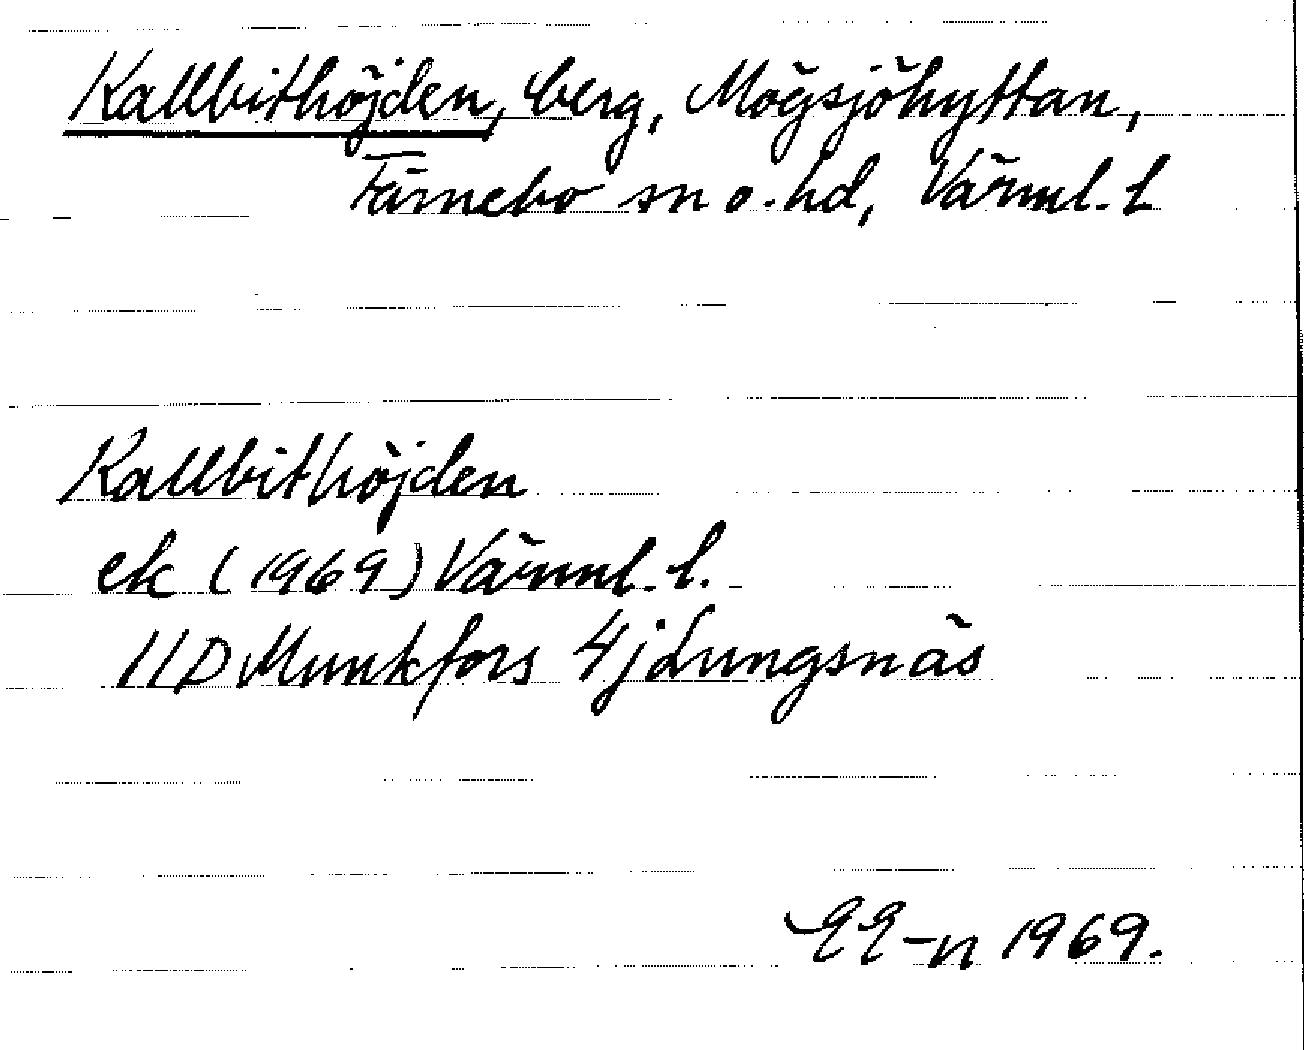 Kallbithöjden, berg, Mögsjöhyttan,
Färnebo sn o. hd, Värml. l
Kallbithöjden
ek (1969) Värml. l.
11D Munkfors 4j Lungsnäs
EE-n 1969.